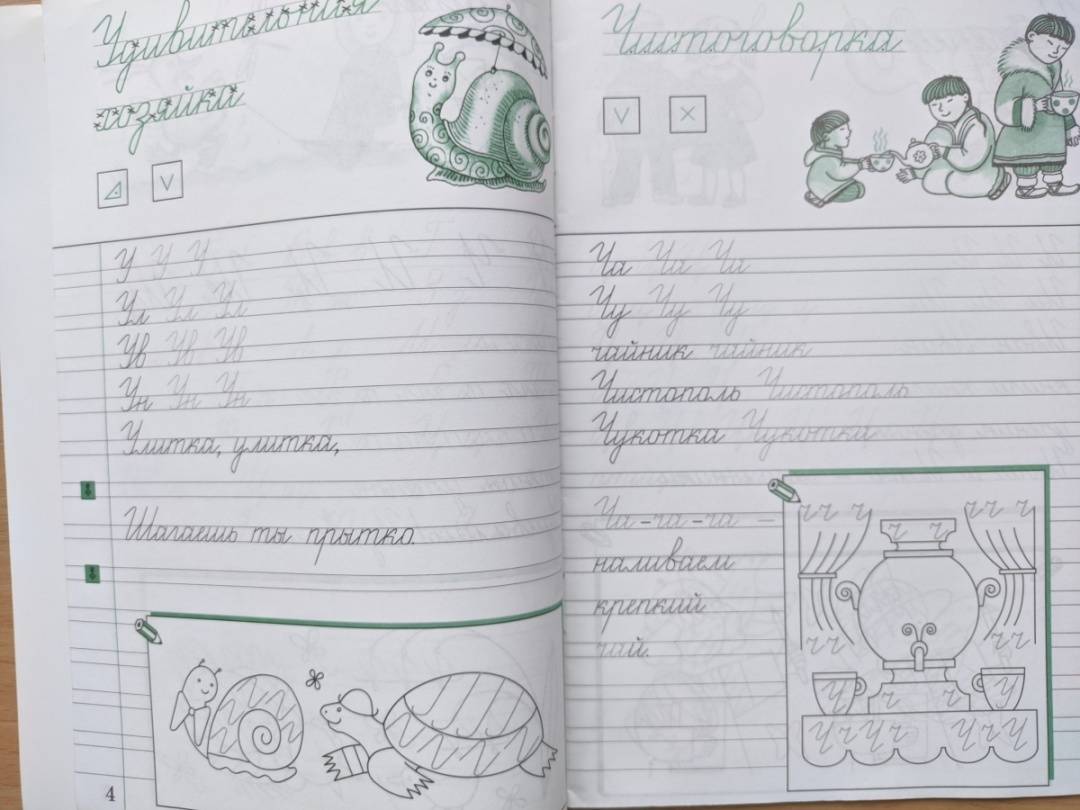 Удивительная
хозяйка
У У У
Ул Ул Ул
Ув Ув Ув
Ун Ун Ун
Улитка, улитка,
Шагаешь ты прытко.
4
Чистоговорка
Ча Ча Ча
Чу Чу Чу
чайник чайник
Чистополь Чистополь
Чукотка Чукотка
Ча-ча-ча –
наливаем
крепкий
чай.
ч ч ч ч ч ч
ч ч
ч ч ч ч
У ч ч У
У ч У ч У ч У